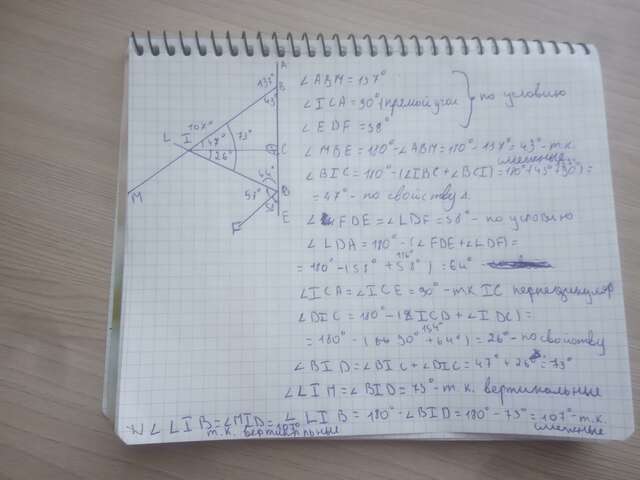 A
137°
B
43°
107°
L I 47° 73°
26°
C
64°
57° B
58°
E
M
F
∠ABM = 137°
∠ICA = 90° (прямой угол
по условию
∠EDF = 58°
∠MBE = 180° - ∠ABM = 180° - 137° = 43° - т.к.
смежные
∠BIC = 180° - (∠IBC + ∠BCI) = 180° (43° + 90°) =
= 47° - по свойству
∠FDE = ∠LDF = 58° - по условию
∠LDA = 180° - (∠FDE + ∠LDF) =
116°
= 180° - (58° + 58°) = 64°
∠ICA = ∠ICE = 90° - т.к IC перпендикуляр
∠DIC = 180° - (∠ICD + ∠IDC) =
154°
= 180° - (90° + 64°) = 26° - по свойству
∠BID = ∠BIC + ∠DIC = 47° + 26° = 73°
∠LIM = ∠BID = 73° - т.к. вертикальные
∠LIB = ∠MID = ∠LIB = 180° - ∠BID = 180° - 73° = 107° - т.к.
т.к. вертикальные 107° смежные